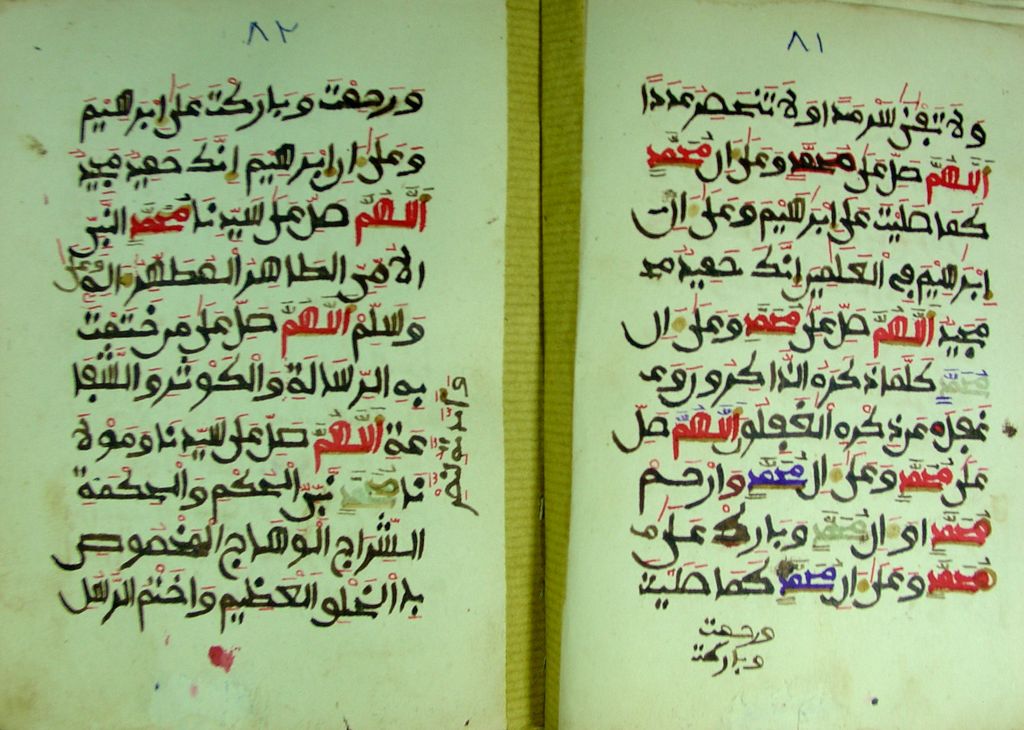 ٨١
ولا تفنى سرمدا ولا تنحصر عددا
اللهم صل على محمد وعلى ال محمد
كما صليت على ابرهيم وعلى ال
ابرهيم في العلمين انك حميد
مجيد اللهم صل على محمد وعلى ال
محمد كلما ذكره الذاكرون و
غفل عن ذكره الغفلو اللهم صل
على محمد وعلى ال محمد وارحم
محمد او ال محمد وبارك على
محمد وعلى ال محمد كما صليت
ورحمت
وباركت
٨٢
ورحمت وباركت على ابرهيم
وعلى ال ابرهيم انك حميد مجيد
اللهم صل على سيدنا محمد النبي
الامي الطاهر المطهر
وعلى
وسلم اللهم صل على من ختمت
به الرسالة والكوثر والشفا
عة اللهم صل على سيدنا ومولا
نا محمد نبي الحكم والحكمة
السراج الوهاج المخصوص
بالخلو العظيم واختم الرسل